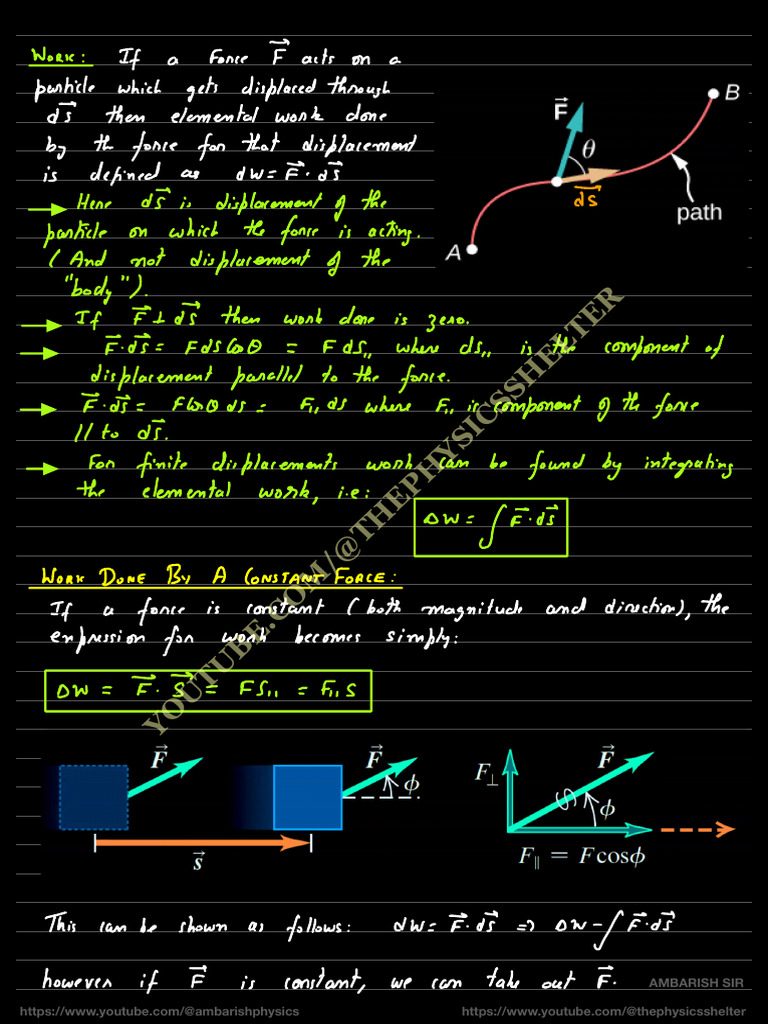 WORK: If a Force F⃗ acts on a
particle which gets displaced through
ds⃗ then elemental work done
by the force for that displacement
is defined as dW = F⃗ · ds⃗
→ Here ds⃗ is displacement of the
particle on which the force is acting.
(And not displacement of the
"body").
→ If F⃗ ⊥ ds⃗ then work done is zero.
→ F⃗·ds⃗ = F ds Cosθ = F ds₁₁ where ds₁₁ is the component of
displacement parallel to the force.
→ F⃗·ds⃗ = F Cosθ ds = F₁₁ ds where F₁₁ is component of the force
// to ds⃗.
→ For finite displacements work can be found by integrating
the elemental work, i.e:
ΔW = ∫ F⃗·ds⃗
F⃗
θ
ds⃗
A
B
path
WORK DONE BY A CONSTANT FORCE:
If a force is constant (both magnitude and direction), the
expression for work becomes simply:
ΔW = F⃗ · S⃗ = F S₁₁ = F₁₁ S
F⃗
F⃗
ϕ
s⃗
F⊥
F⃗
ϕ
F∥ = F cosϕ
This can be shown as follows: dW = F⃗·ds⃗ ⇒ ΔW - ∫ F⃗·ds⃗
however if F⃗ is constant, we can take out F⃗.
AMBARISH SIR
YOUTUBE.COM/@THEPHYSICSSHELTER
https://www.youtube.com/@ambarishphysics
https://www.youtube.com/@thephysicsshelter